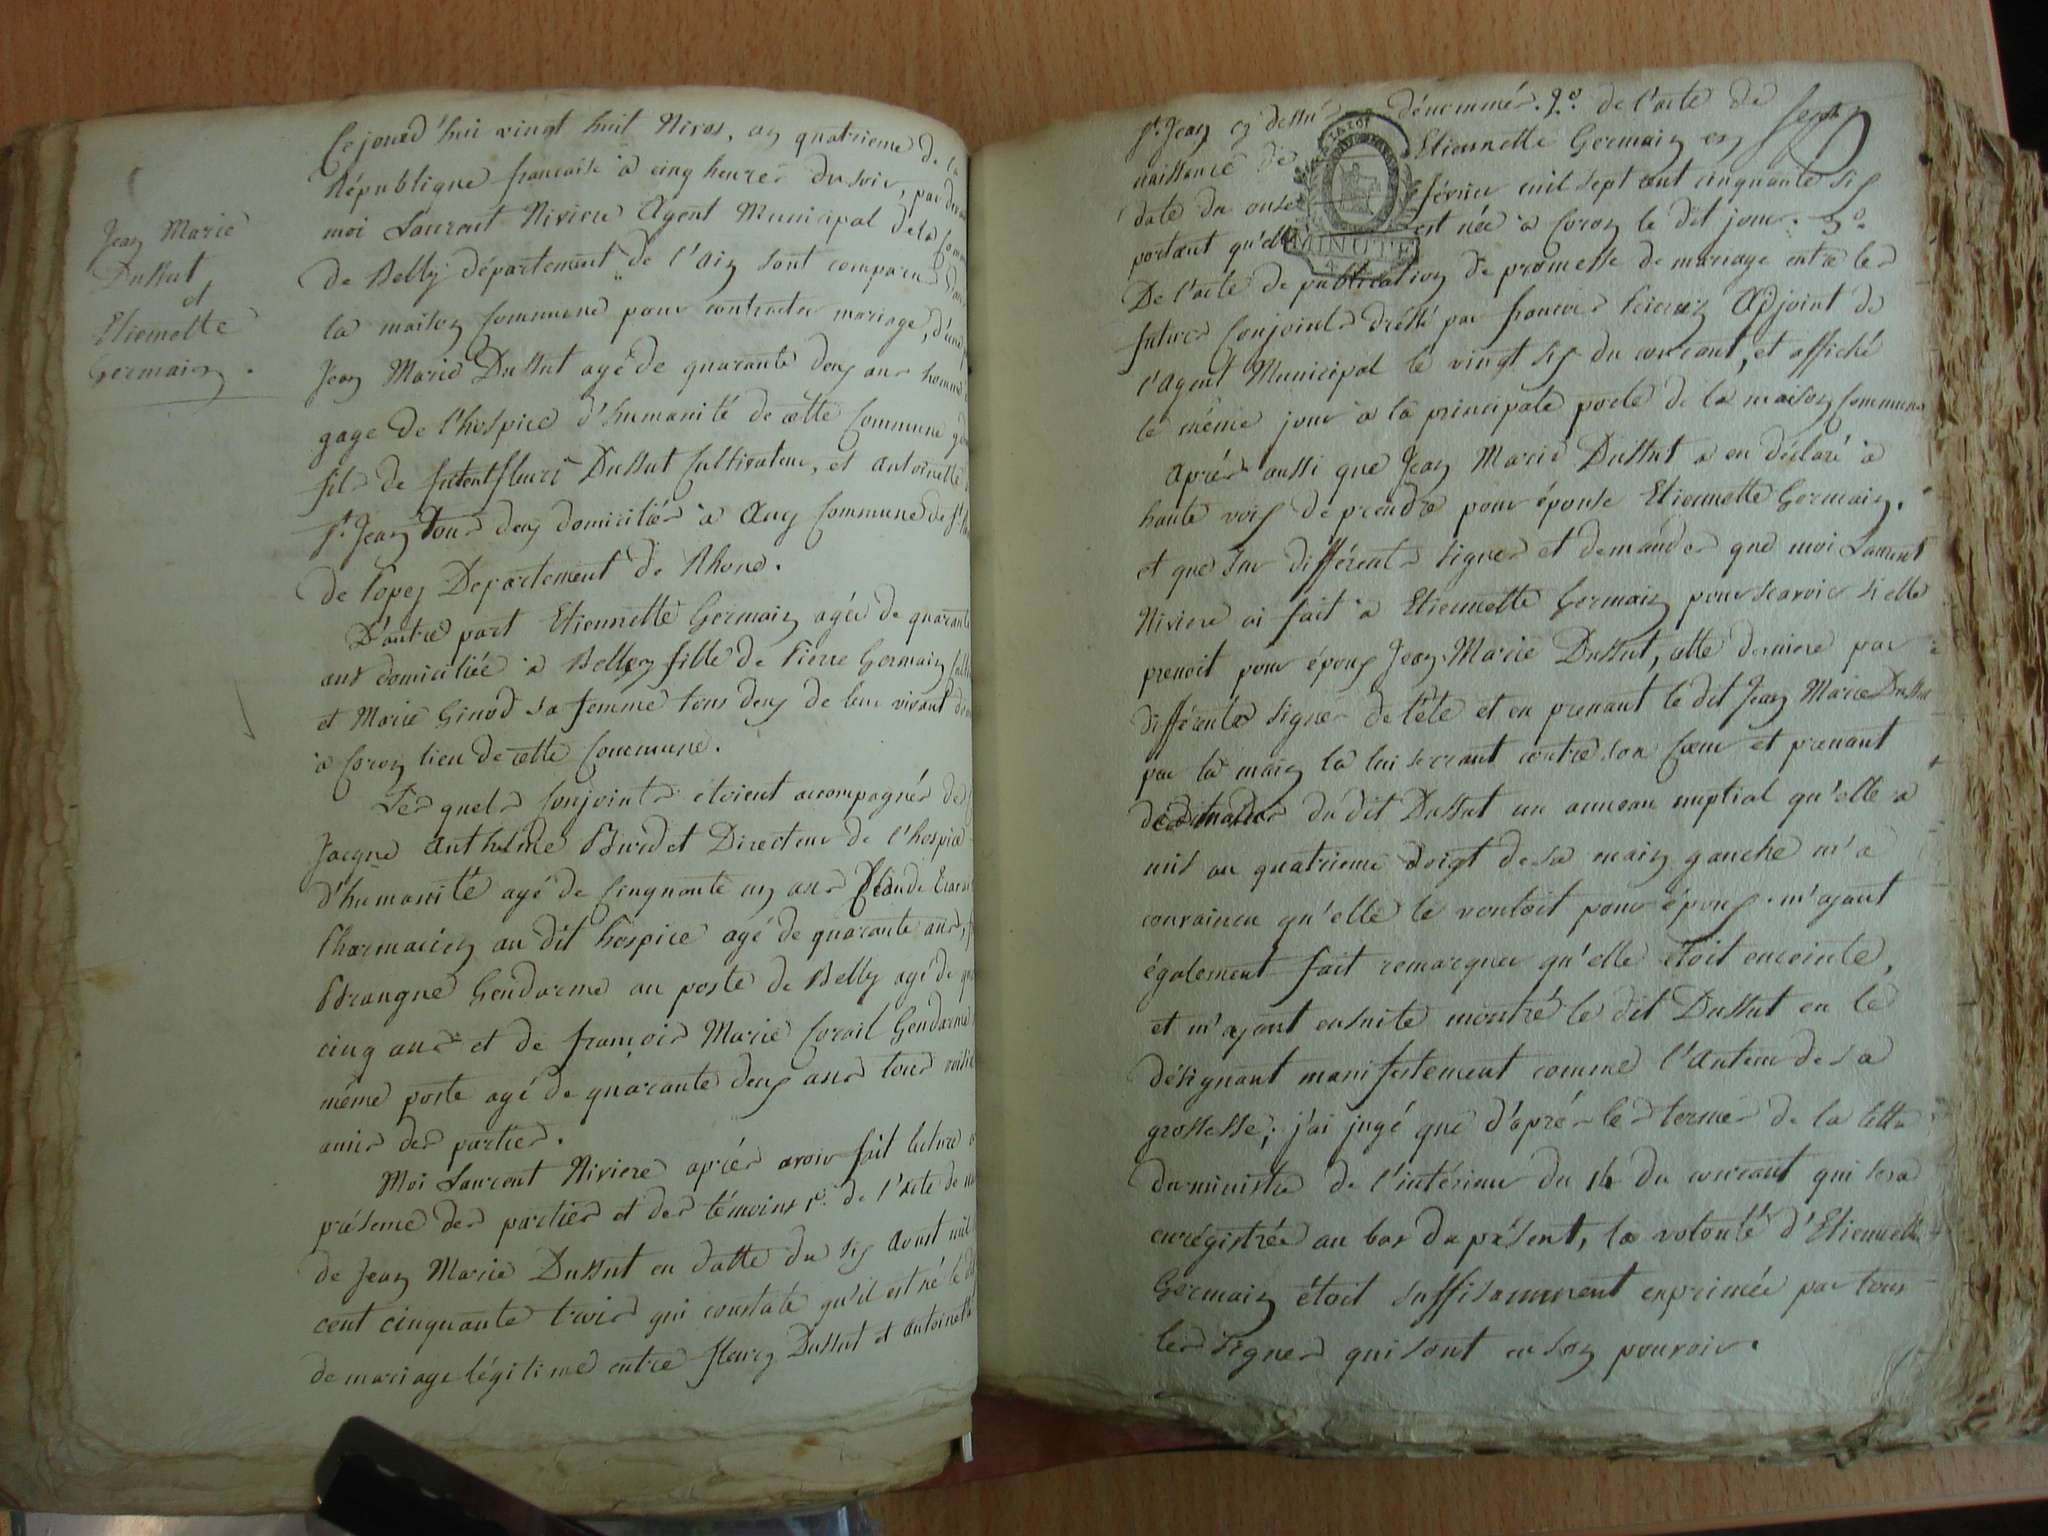 Jean Marie
Dussut
et
Etiennette
Germain.
Cejourd'hui vingt huit Nivos, an quatrieme de la
République francaise à cinq heures du soir, par devant
moi Laurent Niviere Agent Municipal de la Commune
de Belly département de l'Ain sont comparus dans
la maison Commune pour contracter mariage, d'une
Jean Marie Dussut agé de quarante deux ans homme
gage de l'hospice d'humanité de cette Commune
fils de Dussut Cultivateur, et antoinette
St. Jean tous deux domiciliés à Commune de St.
de Département de Rhone.
D'autre part Etiennette Germain agée de quarante
ans domiciliée à Belley fille de Pierre Germain
et Marie Ginod sa femme tous deux de leur vivant
à Coron lieu de cette Commune.
Lesquels Conjoints étoient accompagnés de
Jacque Anthelme Burdet Directeur de l'hospice
d'humanité agé de Cinquante un ans Claude
Pharmacien au dit hospice agé de quarante ans,
Brangue Gendarme au poste de Belly agé de
cinq ans et de françois Marie Corail Gendarme
même poste agé de quarante deux ans tous
amis des parties.
Moi Laurent Niviere après avoir fait lecture
présence des parties et des témoins 1o. de l'acte de
de Jean Marie Dussut en datte du six Aoust mil
cent cinquante trois qui constate qu'il est né le
de mariage légitime entre fleury Dussut et antoinette
St. Jean cy dessus dénommés. 2o. de l'acte de
naissance de Etiennette Germain en
date du onse février mil sept cent cinquante six
portant qu'elle est née à Coron le dit jour. 3o.
MINUTE
De l'acte de publication de promesse de mariage entre les
futurs Conjoints dréssé par francois Adjoint de
l'Agent Municipal le vingt six du courant, et affiché
le même jour à la principale porte de la maison Commune
Après aussi que Jean Marie Dussut a eu déclaré à
haute voix de prendre pour épouse Etiennette Germain.
et que sur différents signes et demandes que moi Laurent
Niviere ai fait à Etiennette Germain pour scavoir si elle
prenoit pour époux Jean Marie Dussut, cette derniere par
différents signes de tête et en prenant le dit Jean Marie Dussut
par la main la lui serrant contre son Coeur et prenant
du dit Dussut un anneau nuptial qu'elle a
mis au quatrieme doigt de sa main gauche m'a
convaincu qu'elle le vouloit pour époux. m'ayant
également fait remarquer qu'elle étoit enceinte,
et m'ayant ensuite montré le dit Dussut en le
désignant manifestement comme l'Auteur de sa
grossesse; j'ai jugé que d'après les termes de la lettre
du ministre de l'intérieur du 14 du courant qui sera
enrégistrée au bas du présent, la volonté d'Etiennette
Germain étoit suffisamment exprimée par tous
les signes qui sont en son pouvoir.